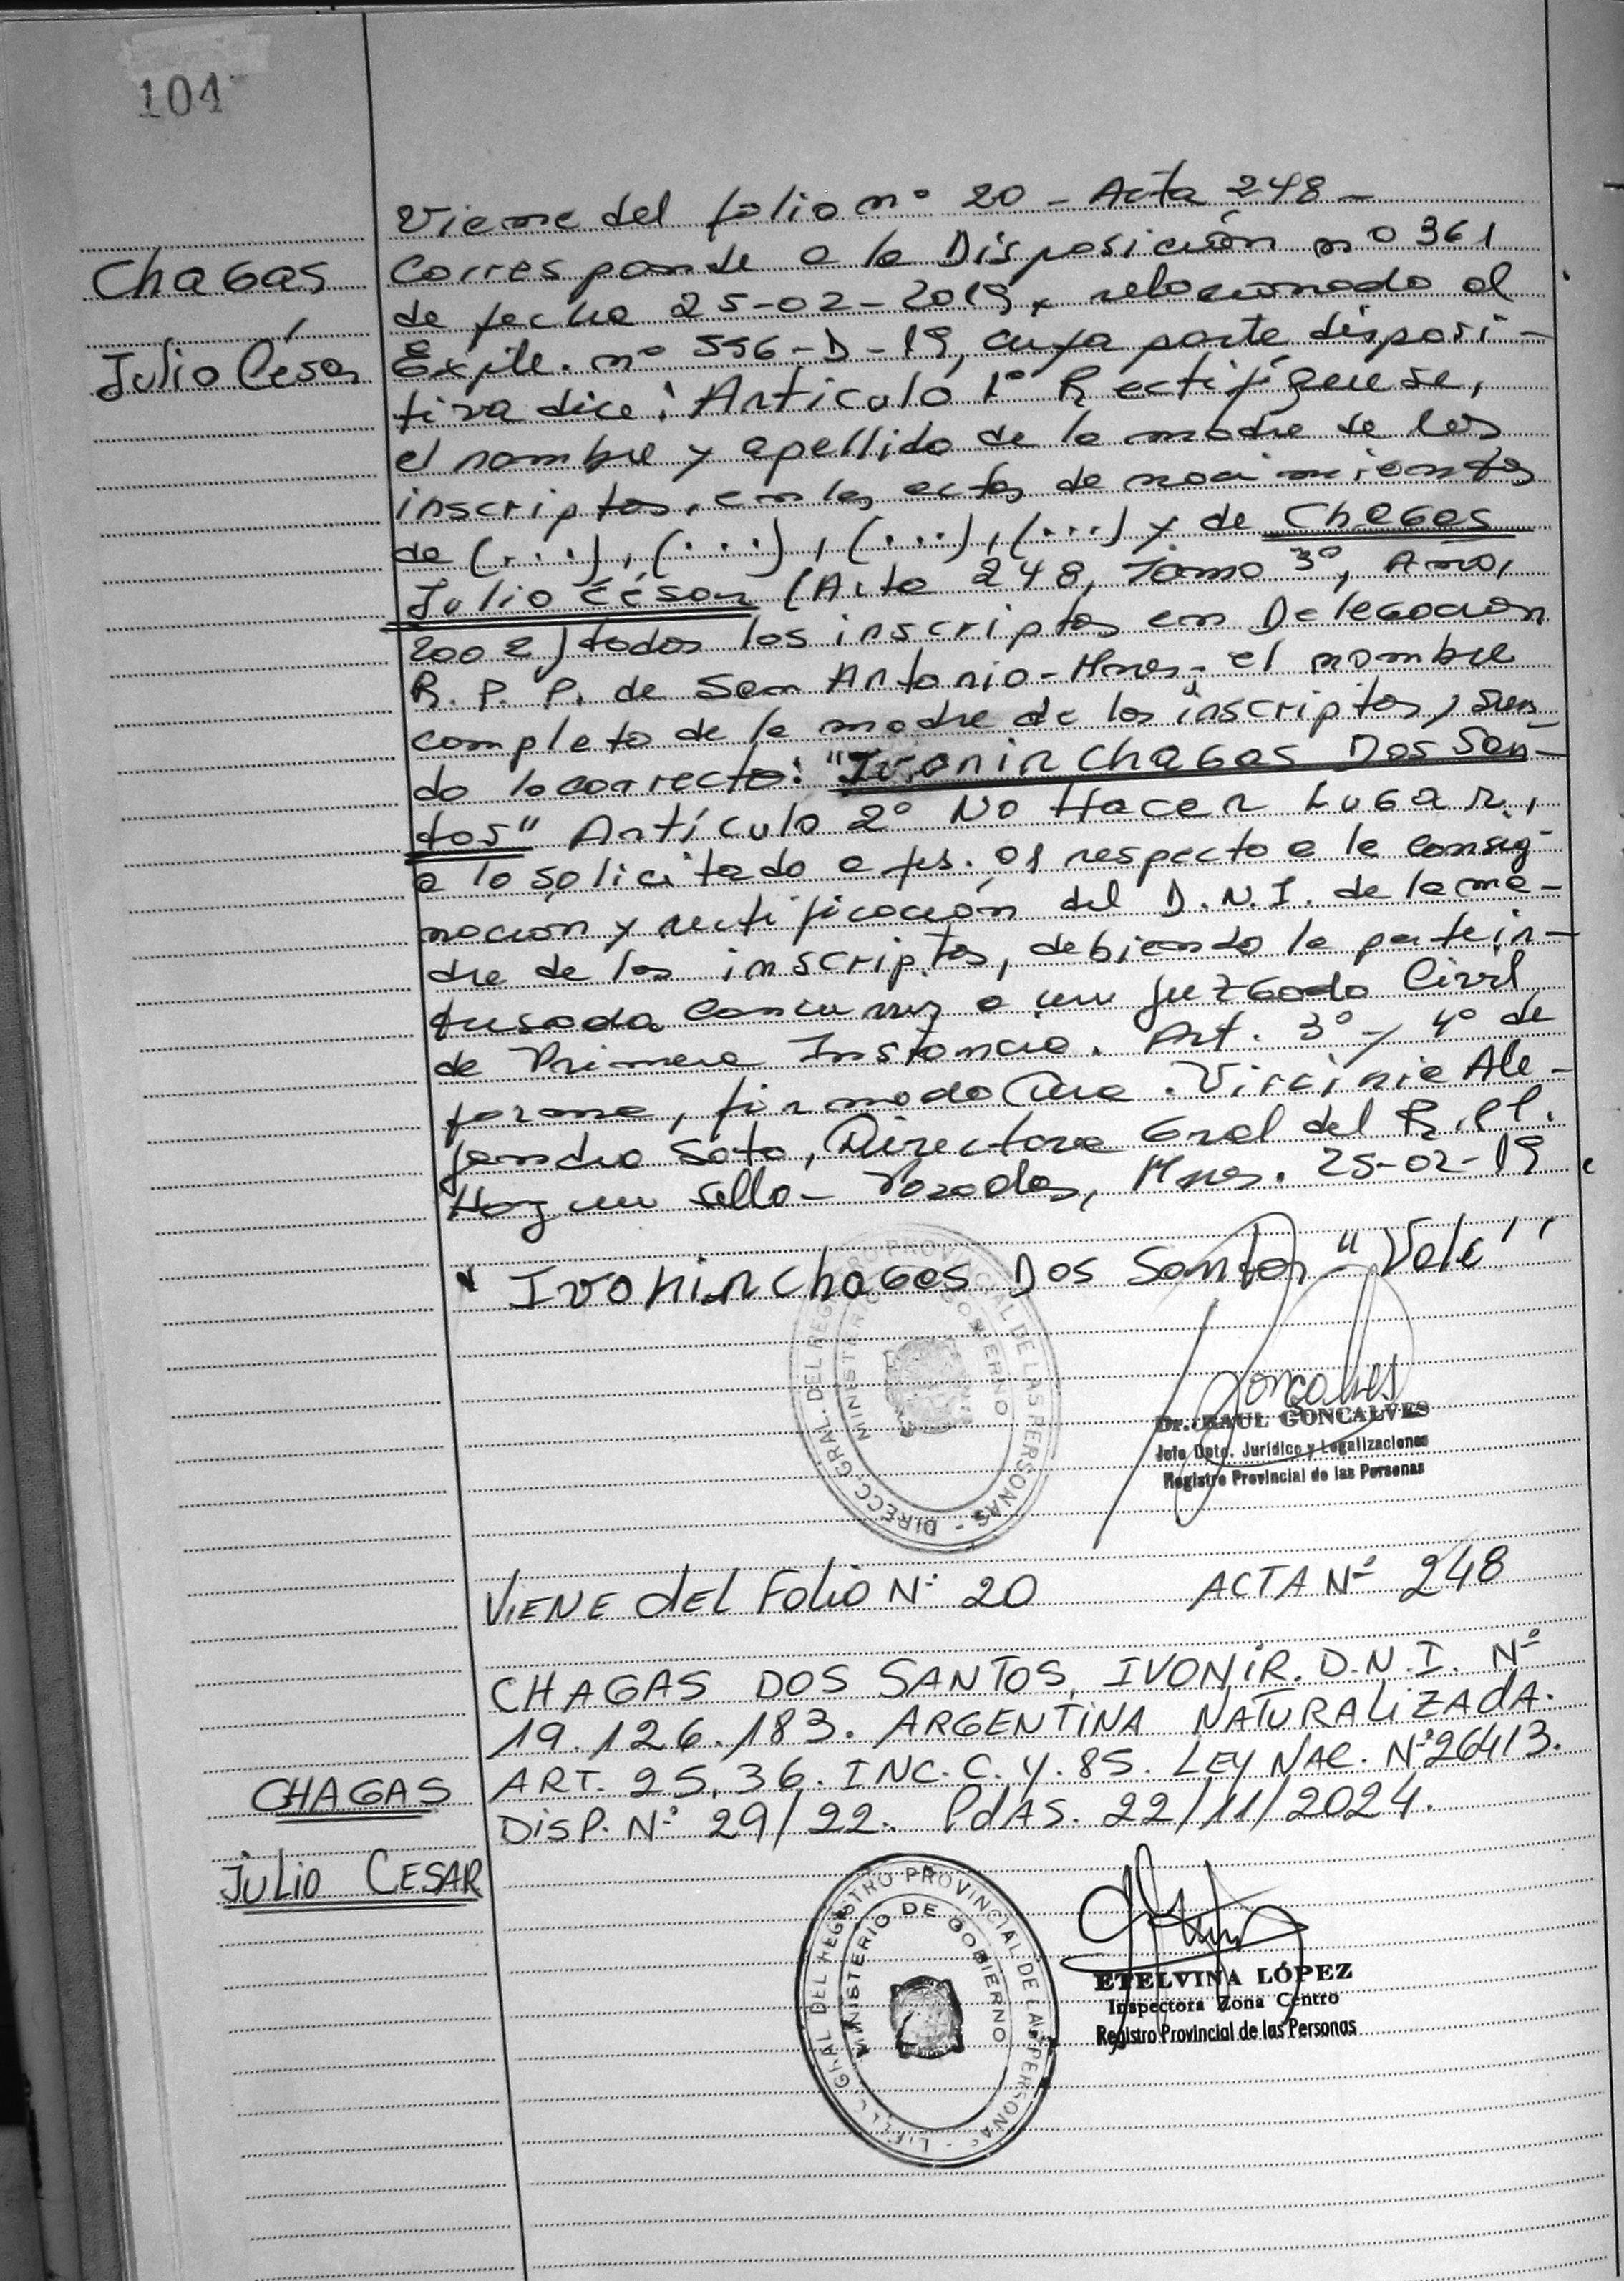 101
Viene del folio nº 20 - Acta 248 -
Chagas
Corresponde a la Disposición nº 361
de fecha 25-02-2019, relacionado al
Julio César
Expte. nº 596-D-19, cuya parte disposi-
tiva dice: Artículo 1º Rectifíquese,
el nombre y apellido de la madre de los
inscriptos, en las actas de nacimientos
de (...), (...), (...), (...) y de Chagas
Julio César (Acta 248, Tomo 3º, Año,
2002) todos los inscriptos en Delegación
R. P. P. de San Antonio - Mnes - el nombre
completo de la madre de los inscriptos, sien-
do lo correcto: "Ivonir Chagas Dos San-
tos" Artículo 2º No Hacer Lugar,
a lo solicitado a fs. 01 respecto a la consig-
nación y rectificación del D.N.I. de la ma-
dre de los inscriptos, debiendo la parte in-
teresada concurrir a un Juzgado Civil
de Primera Instancia. Art. 3º y 4º de
forma, firmado Dra. Virginia Ale-
jandra Soto, Directora Gral del R.P.P.
Hay un sello - Posadas, Mnes. 25-02-19
Ivonir Chagas Dos Santos "Vale"
DIRECC. GRAL. DEL REGISTRO PROVINCIAL DE LAS PERSONAS -
MINISTERIO DE GOBIERNO
Goncalves
Dr. RAUL GONCALVES
Jefe Dpto. Jurídico y Legalizaciones
Registro Provincial de las Personas
VIENE dEL FOLIO Nº 20 ACTA Nº 248
CHAGAS DOS SANTOS, IVONIR. D.N.I. Nº
19.126.183. ARGENTINA NATURALIZADA.
ART. 25, 36. INC. C. Y. 85. LEY NAC. Nº 26413.
CHAGAS
DISP. Nº 29/22. PdAS. 22/11/2024.
JULIO CESAR
DIRECC. GRAL DEL REGISTRO PROVINCIAL DE LAS PERSONAS -
MINISTERIO DE GOBIERNO
ETELVINA LÓPEZ
Inspectora Zona Centro
Registro Provincial de las Personas